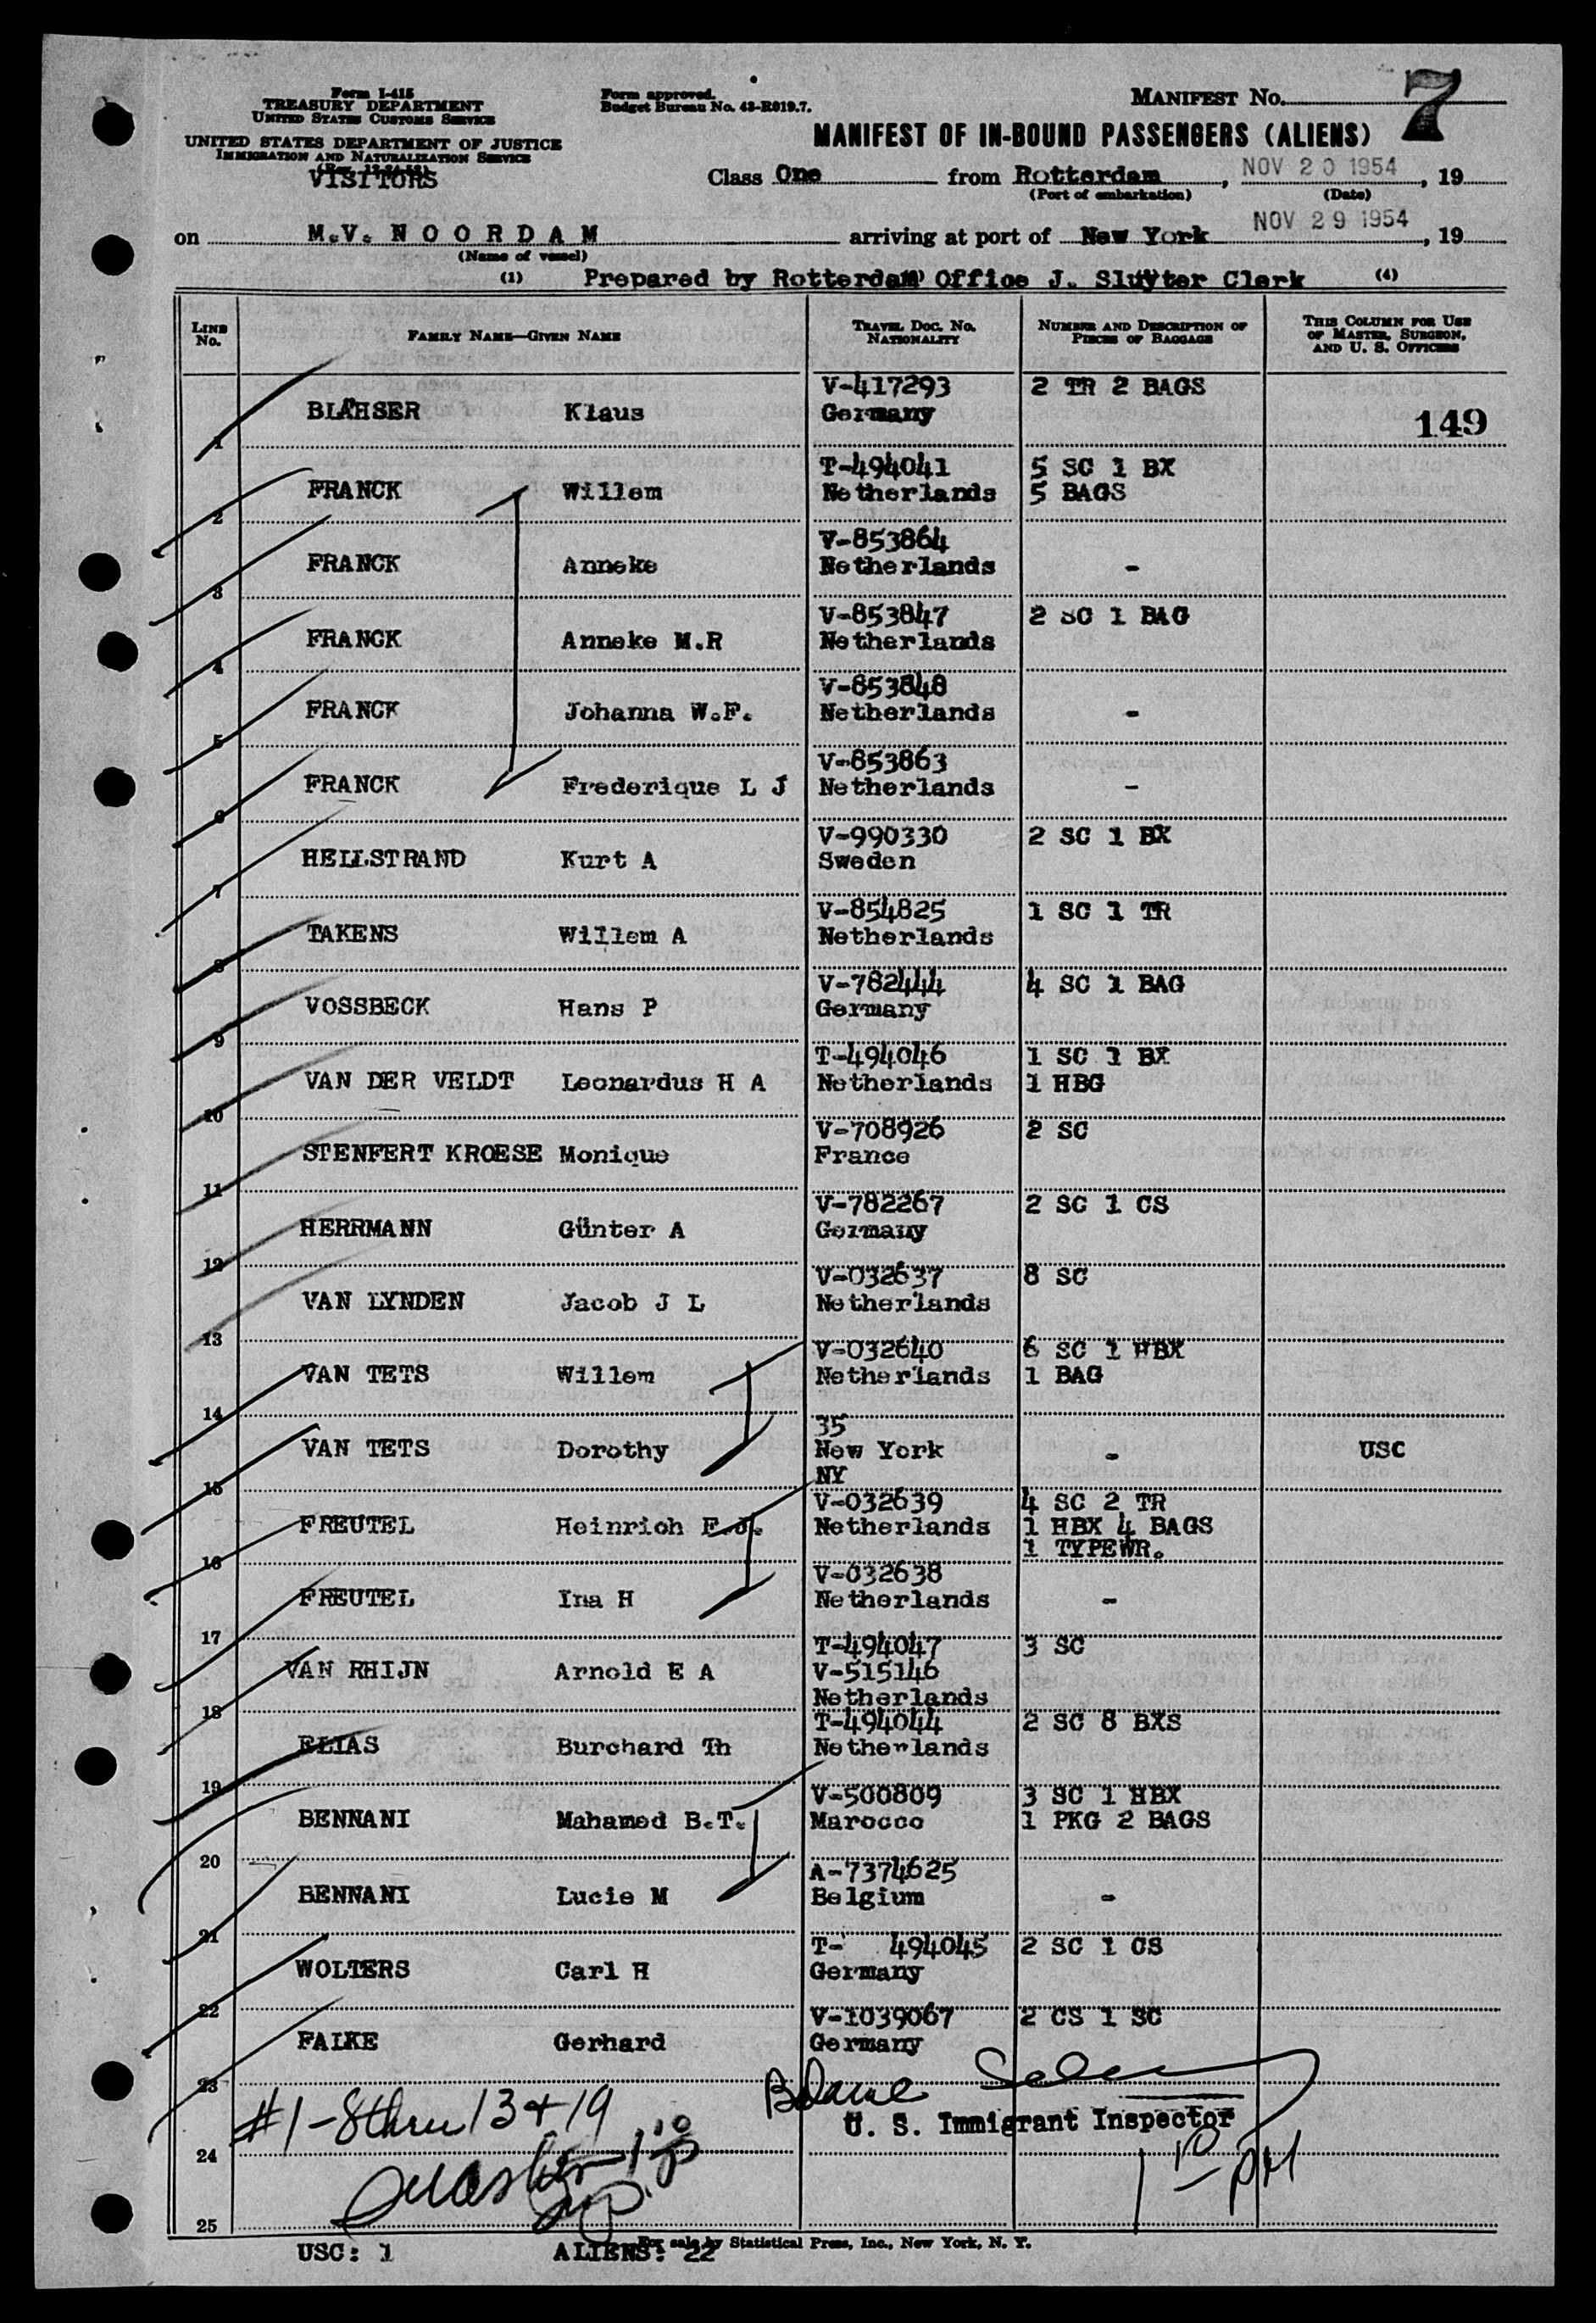 Form I-415
TREASURY DEPARTMENT
UNITED STATES CUSTOMS SERVICE
UNITED STATES DEPARTMENT OF JUSTICE
IMMIGRATION AND NATURALIZATION SERVICE
VISITORS
Form approved.
Budget Bureau No. 43-R019.7.
MANIFEST No. 7
MANIFEST OF IN-BOUND PASSENGERS (ALIENS)
Class One from Rotterdam, NOV 20 1954, 19
(Port of embarkation) (Date)
on M.V. NOORDAM arriving at port of New York NOV 29 1954, 19
(Name of vessel)
(1) Prepared by Rotterdam Office J. Sluyter Clerk (4)
LINE No. FAMILY NAME—GIVEN NAME TRAVEL DOC. NO. NATIONALITY NUMBER AND DESCRIPTION OF PIECES OF BAGGAGE THIS COLUMN FOR USE OF MASTER, SURGEON, AND U. S. OFFICERS
V-417293 2 TR 2 BAGS
BLÄHSER Klaus Germany 149
1
T-494041 5 SC 1 BX
FRANCK Willem Netherlands 5 BAGS
2
V-853864
FRANCK Anneke Netherlands -
3
V-853847 2 SC 1 BAG
FRANCK Anneke M.R Netherlands
4
V-853848
FRANCK Johanna W.F. Netherlands -
5
V-853863
FRANCK Frederique L J Netherlands -
6
V-990330 2 SC 1 BX
HELLSTRAND Kurt A Sweden
7
V-854825 1 SC 1 TR
TAKENS Willem A Netherlands
8
V-782444 4 SC 1 BAG
VOSSBECK Hans P Germany
9
T-494046 1 SC 1 BX
VAN DER VELDT Leonardus H A Netherlands 1 HBG
10
V-708926 2 SC
STENFERT KROESE Monique France
11
V-782267 2 SC 1 CS
HERRMANN Günter A Germany
12
V-032637 8 SC
VAN LYNDEN Jacob J L Netherlands
13
V-032640 6 SC 1 HBX
VAN TETS Willem Netherlands 1 BAG
14
35
VAN TETS Dorothy New York - USC
NY
15
V-032639 4 SC 2 TR
FREUTEL Heinrich F.J. Netherlands 1 HBX 4 BAGS
1 TYPEWR.
16
V-032638
FREUTEL Ina H Netherlands -
17
T-494047 3 SC
VAN RHIJN Arnold E A V-515146
Netherlands
18
T-494044 2 SC 8 BXS
ELIAS Burchard Th Netherlands
19
V-500809 3 SC 1 HBX
BENNANI Mahamed B.T. Marocco 1 PKG 2 BAGS
20
A-7374625
BENNANI Lucie M Belgium -
21
T- 494045 2 SC 1 CS
WOLTERS Carl H Germany
22
V-1039067 2 CS 1 SC
FALKE Gerhard Germany
23
#1-8 thru 13 + 19
U. S. Immigrant Inspector
24
25
For sale by Statistical Press, Inc., New York, N. Y.
USC: 1 ALIENS: 22